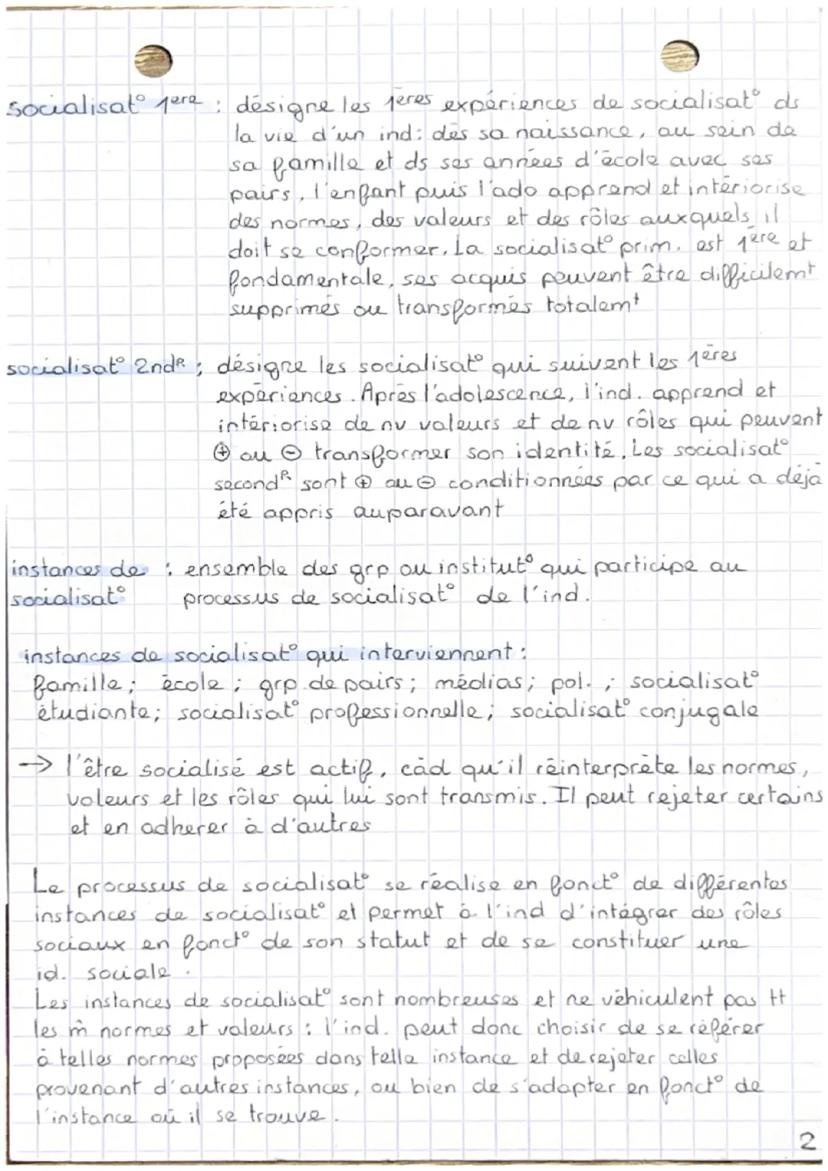 socialisat° 1ère : désigne les 1ères expériences de socialisat° ds
la vie d'un ind: dès sa naissance, au sein de
sa famille et ds ses années d'école avec ses
pairs, l'enfant puis l'ado apprend et intériorise
des normes, des valeurs et des rôles auxquels il
doit se conformer. La socialisat° prim. est 1ère et
fondamentale, ses acquis peuvent être difficilemt
supprimés ou transformés totalemt
socialisat° 2ndR ; désigne les socialisat° qui suivent les 1ères
expériences. Après l'adolescence, l'ind. apprend et
intériorise de nv valeurs et de nv rôles qui peuvent
⊕ ou ⊖ transformer son identité. Les socialisat°
secondR sont ⊕ ou ⊖ conditionnées par ce qui a déjà
été appris auparavant
instances de : ensemble des grp ou institut° qui participe au
socialisat° processus de socialisat° de l'ind.
instances de socialisat° qui interviennent :
famille; école; grp de pairs; médias; pol. ; socialisat°
étudiante; socialisat° professionnelle; socialisat° conjugale
→ l'être socialisé est actif, càd qu'il réinterprète les normes,
valeurs et les rôles qui lui sont transmis. Il peut rejeter certains
et en adhérer à d'autres
Le processus de socialisat° se réalise en fonct° de différentes
instances de socialisat° et permet à l'ind d'intégrer des rôles
sociaux en fonct° de son statut et de se constituer une
id. sociale.
Les instances de socialisat° sont nombreuses et ne véhiculent pas tt
les m̂ normes et valeurs : l'ind. peut donc choisir de se référer
à telles normes proposées dans telle instance et de rejeter celles
provenant d'autres instances, ou bien de s'adapter en fonct° de
l'instance où il se trouve.
2